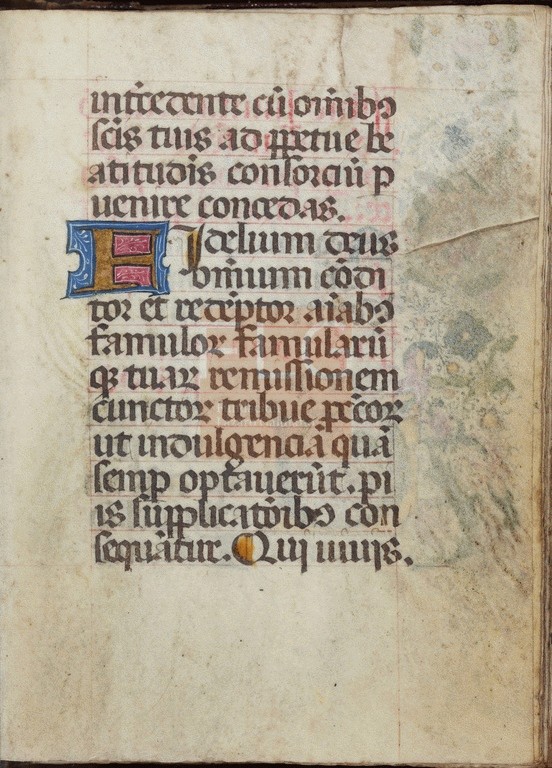 int̃cedente cũ om̃ibꝯ
sc̃is tuis ad ꝑpetue be
atitudĩs consorciũ p
uenire concedas.
Fidelium deus
om̃ium cõdi
tor et redẽptor aĩabꝯ
famuloꝝ famularũ
qꝫ tuaꝝ remissionem
cunctoꝝ tribue p̃cor
ut indulgenciã quã
semꝑ optauerũt. pi
is supplicatõibꝯ con
sequãtur. Qui uiuis.